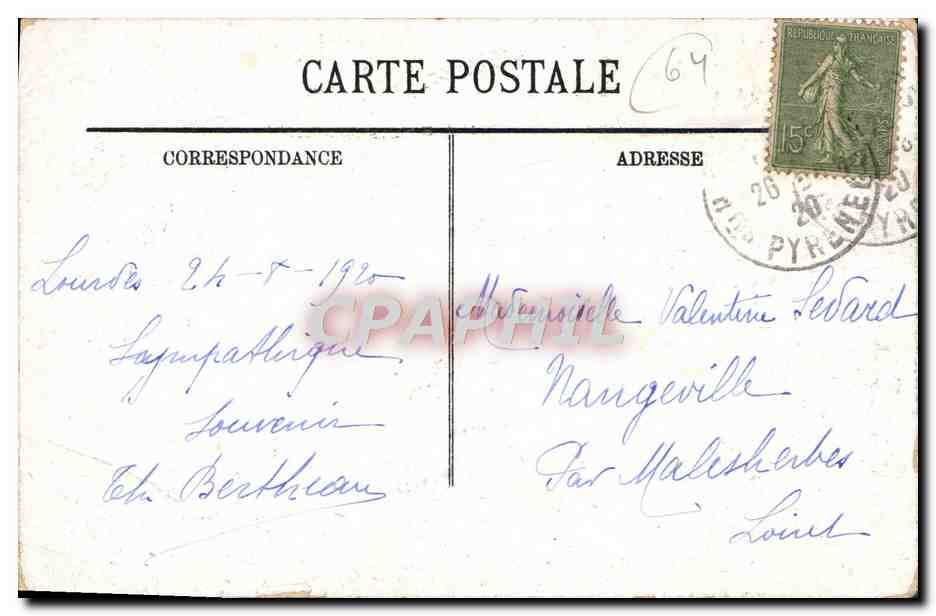 CARTE POSTALE
64
REPUBLIQUE FRANÇAISE
15c
POSTES
CORRESPONDANCE
ADRESSE
26
20
PYRENEES
20
Lourdes 24-8-1920
Sympathique
Souvenir
Th Bertheau
Mademoiselle Valentine Sevard
Nangeville
Par Malesherbes
Loiret
CPAPHIL